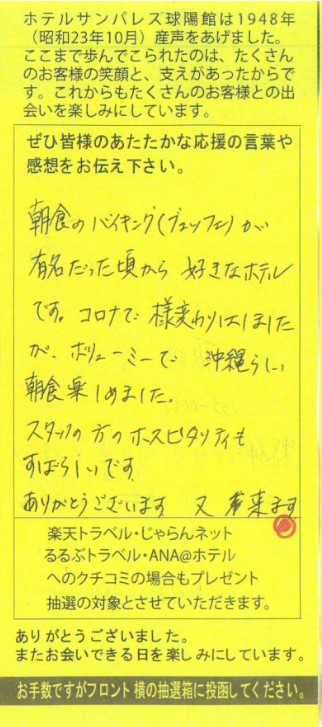 ホテルサンパレス球陽館は1948年
(昭和23年10月)産声をあげました。
ここまで歩んでこられたのは、たくさん
のお客様の笑顔と、支えがあったからで
す。これからもたくさんのお客様との出
会いを楽しみにしています。
ぜひ皆様のあたたかな応援の言葉や
感想をお伝え下さい。
朝食のバイキング(ブュッフェ)が
有名だった頃から 好きなホテル
です。コロナで 様変わりはしました
が、ボリューミーで 沖縄らしい
朝食楽しめました。
スタッフの方のホスピタリティも
すばらしいです
ありがとうございます 又 来ます
楽天トラベル・じゃらんネット
るるぶトラベル・ANA@ホテル
へのクチコミの場合もプレゼント
抽選の対象とさせていただきます。
ありがとうございました。
またお会いできる日を楽しみにしています。
お手数ですがフロント横の抽選箱に投函してください。